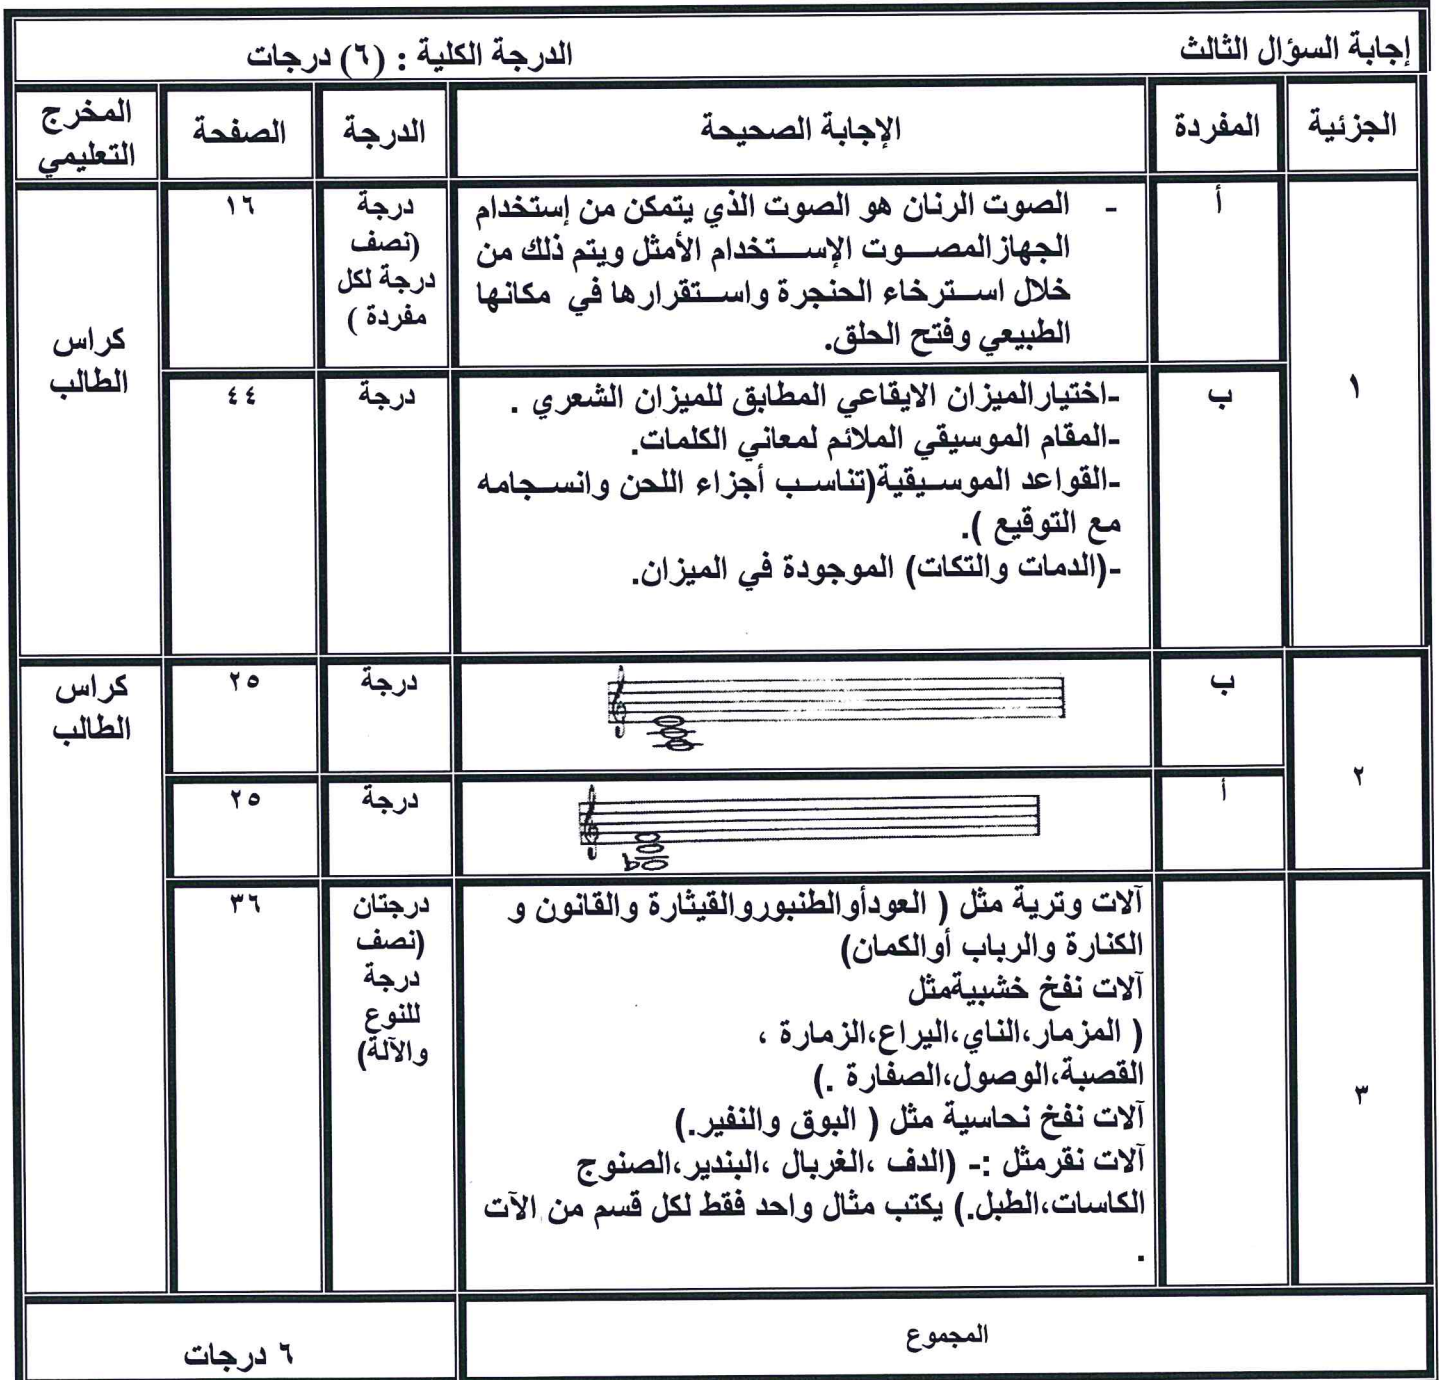 إجابة السؤال الثالث الدرجة الكلية : (٦) درجات
الجزئية المفردة الإجابة الصحيحة الدرجة الصفحة المخرج
التعليمي
١
أ
- الصوت الرنان هو الصوت الذي يتمكن من إستخدام
الجهازالمصوت الإستخدام الأمثل ويتم ذلك من
خلال استرخاء الحنجرة واستقرارها في مكانها
الطبيعي وفتح الحلق.
درجة
(نصف
درجة لكل
مفردة )
١٦
كراس
الطالب
ب
-اختيارالميزان الايقاعي المطابق للميزان الشعري .
-المقام الموسيقي الملائم لمعاني الكلمات.
-القواعد الموسيقية(تناسب أجزاء اللحن وانسجامه
مع التوقيع ).
-(الدمات والتكات) الموجودة في الميزان.
درجة
٤٤
٢
ب
درجة
٢٥
كراس
الطالب
أ
درجة
٢٥
٣
آلات وترية مثل ( العودأوالطنبوروالقيثارة والقانون و
الكنارة والرباب أوالكمان)
آلات نفخ خشبيةمثل
( المزمار،الناي،اليراع،الزمارة ،
القصبة،الوصول،الصفارة .)
آلات نفخ نحاسية مثل ( البوق والنفير.)
آلات نقرمثل :- (الدف ،الغربال ،البندير،الصنوج
الكاسات،الطبل.) يكتب مثال واحد فقط لكل قسم من الآت
.
درجتان
(نصف
درجة
للنوع
والآلة)
٣٦
المجموع
٦ درجات